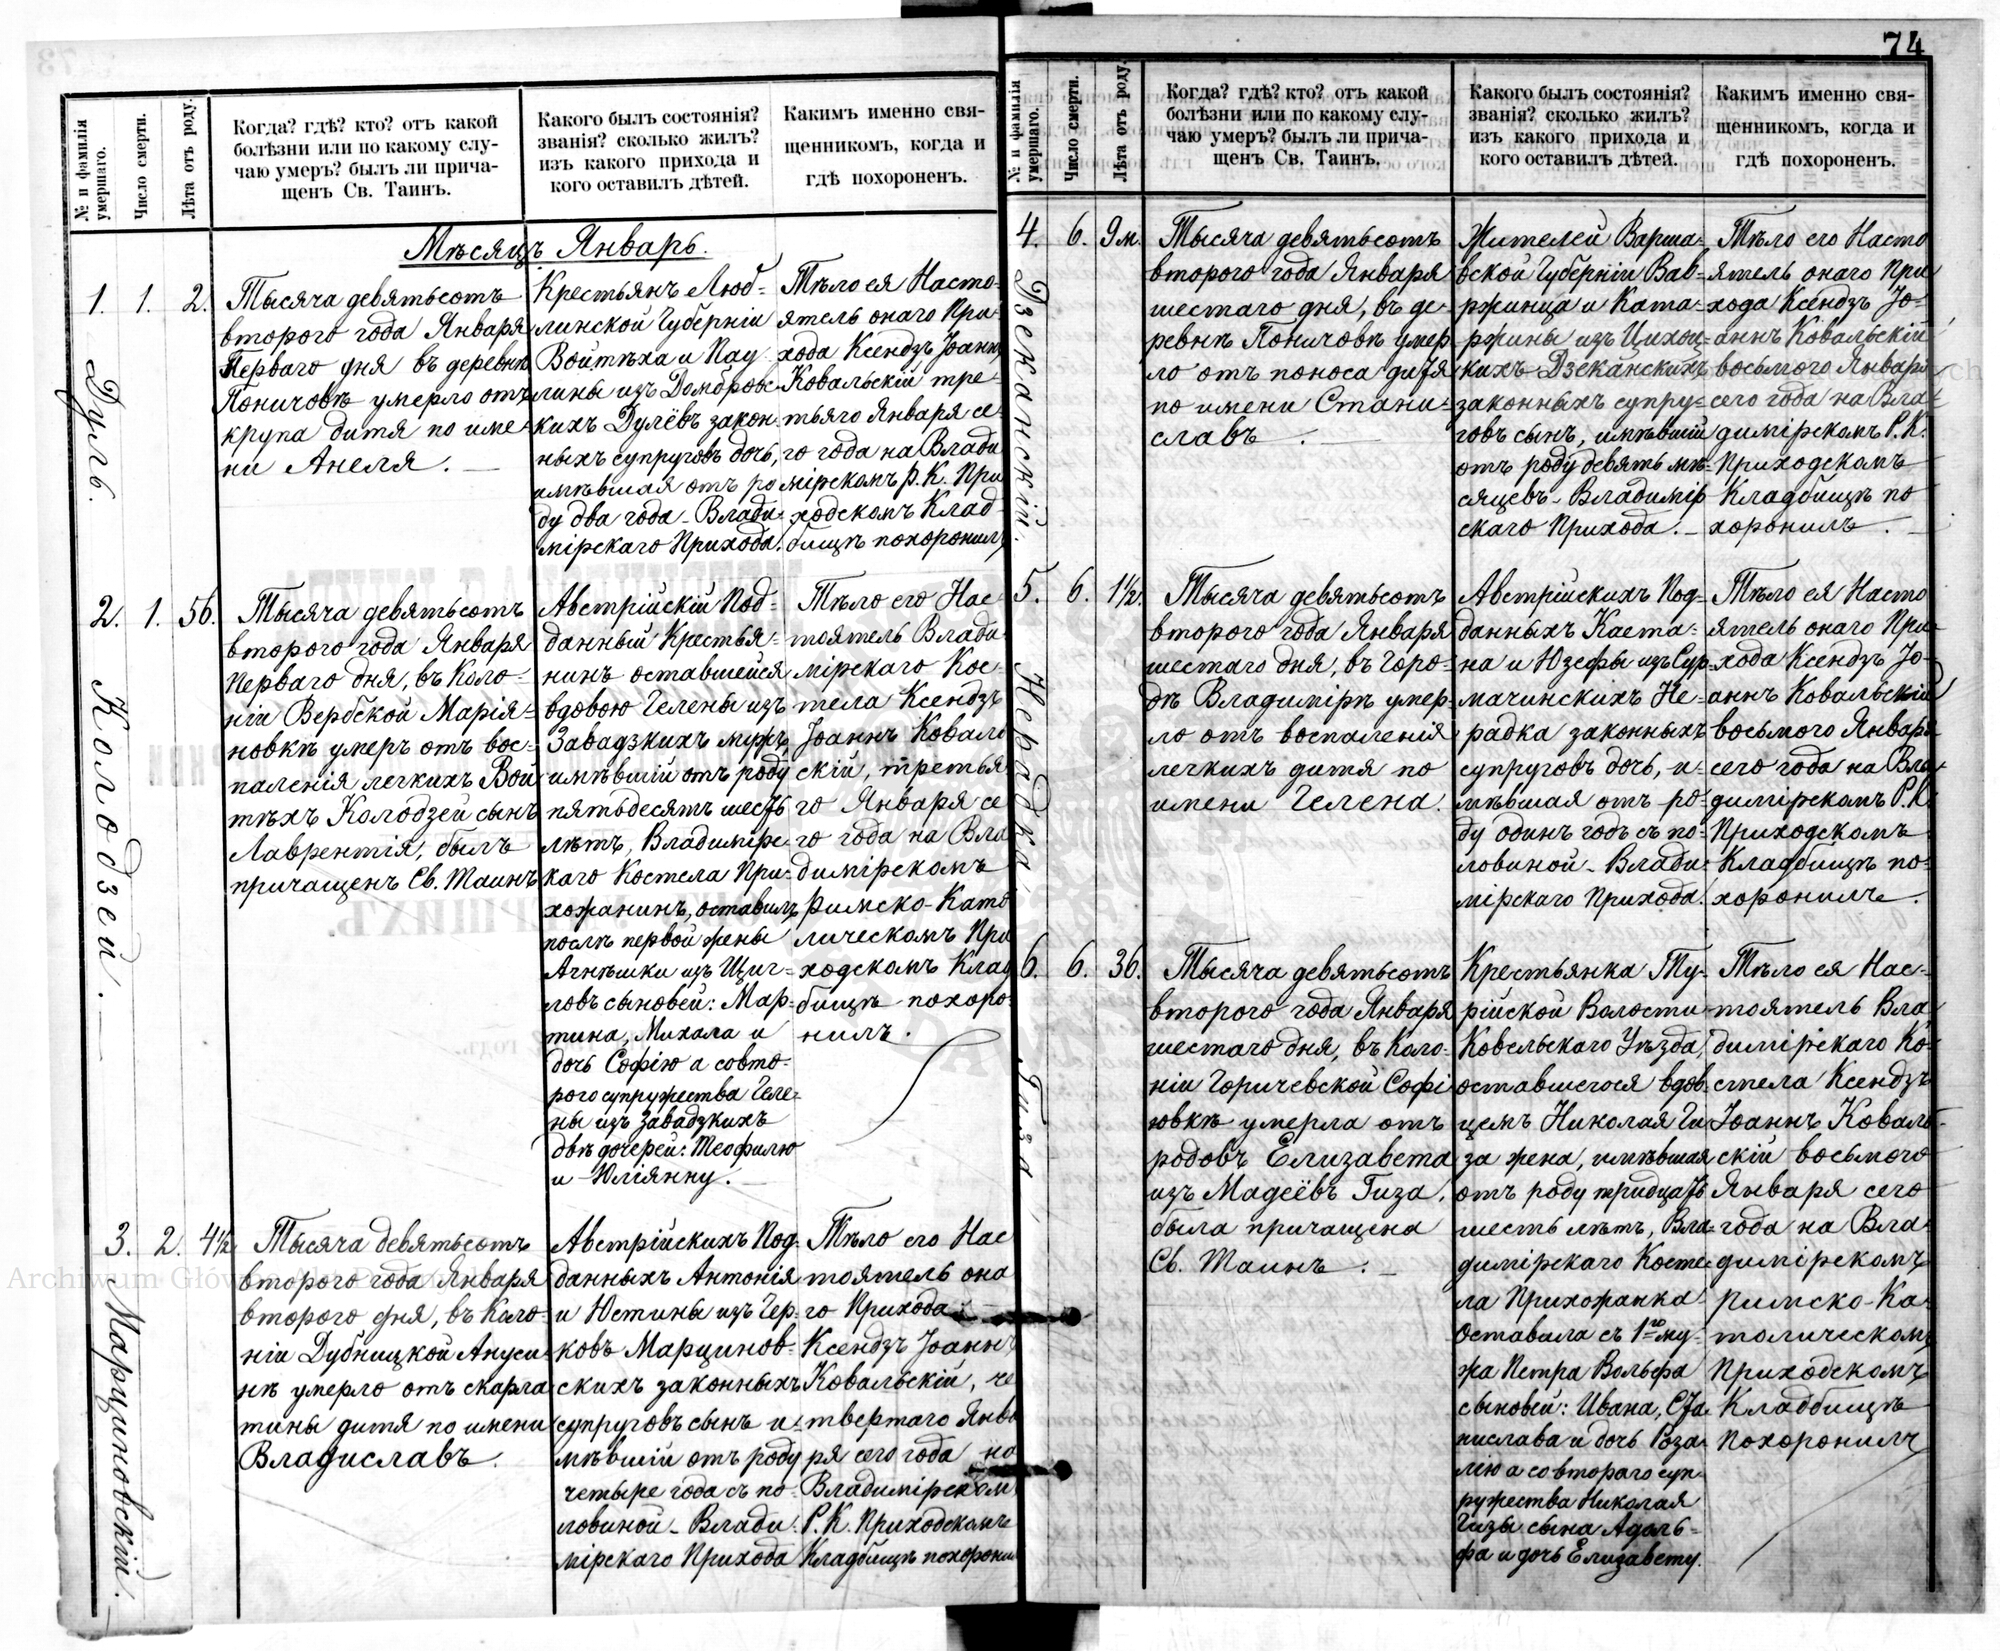 74
№ и фамилія умершаго.
Число смерти.
Лѣта отъ роду.
Когда? гдѣ? кто? отъ какой
болѣзни или по какому слу-
чаю умеръ? былъ ли прича-
щенъ Св. Таинъ.
Какого былъ состоянія?
званія? сколько жилъ?
изъ какого прихода и
кого оставилъ дѣтей.
Каким именно свя-
щенникомъ, когда и
гдѣ похороненъ.
Мѣсяцъ Январь.
1.
Дуль.
1.
2.
Тысяча девятьсотъ
второго года Января
Перваго дня въ деревнѣ
Поничовкѣ умерло отъ
крупа дитя по име-
ни Анеля.
Крестьянъ Люб-
линской Губерніи
Войтѣха и Пау
лины изъ Домбровс
кихъ Дулёвъ закон
ныхъ супруговъ дочь,
имѣвшая отъ ро
ду два года - Влади
мірскаго Прихода.
Тѣло ея Насто-
ятель онаго При
хода Ксендзъ Іоаннъ
Ковальскій тре-
тьяго Января се-
го года на Влади
мірскомъ Р. К. При
ходскомъ Клад-
бищѣ похоронилъ
2.
Колодзей.
1.
56.
Тысяча девятьсотъ
второго года Января
Перваго дня, въ Коло-
ніи Вербской Марія-
новкѣ умеръ отъ вос-
паленія легкихъ Вой
тѣхъ Колодзей сынъ
Лаврентія, былъ
причащенъ Св. Таинъ
Австрійскій Под-
данный Крестья-
нинъ оставшейся
вдовою Гелены изъ
Завадзкихъ мужъ,
имѣвшій отъ роду
пятьдесятъ шесть
лѣтъ, Владимірс-
каго Костела При-
хожанинъ, оставилъ
послѣ первой жены
Агнѣшки изъ Щиг-
ловъ сыновей: Мар-
тина, Михала и
дочь Софію а совто-
рого супружества Геле-
ны изъ Завадзкихъ
двѣ дочерей: Теофилю
и Юліянну.
Тѣло его Нас
тоятель Влади
мірскаго Кос-
тела Ксендзъ
Іоаннъ Коваль
скій, третья
го Января се
го года на Вла
димірскомъ
Римско-Като
лическомъ При
ходскомъ Клад
бищѣ похоро-
нилъ.
3.
Марциновскій.
2.
4½
Тысяча девятьсотъ
второго года Января
второго дня, въ Коло-
ніи Дубницкой Ануси-
нѣ умерло отъ скарла
тины дитя по имени
Владиславъ.
Австрійскихъ Под-
данныхъ Антонія
и Юстины изъ Гер-
ковъ Марцинов-
скихъ законныхъ
супруговъ сынъ и-
мѣвшій отъ роду
четыре года съ по-
ловиной - Влади
мірскаго Прихода
Тѣло его Нас
тоятель она
го Прихода
Ксендзъ Іоаннъ
Ковальскій, че
твертаго Янва
ря сего года на
Владимірском
Р. К. Приходскомъ
Кладбищѣ похорони
№ и фамилія умершаго.
Число смерти.
Лѣта отъ роду.
Когда? гдѣ? кто? отъ какой
болѣзни или по какому слу-
чаю умеръ? былъ ли прича-
щенъ Св. Таинъ.
Какого былъ состоянія?
званія? сколько жилъ?
изъ какого прихода и
кого оставилъ дѣтей.
Каким именно свя-
щенникомъ, когда и
гдѣ похороненъ.
4.
Дзеканскій.
6.
9м.
Тысяча девятьсотъ
второго года Января
шестаго дня, въ де-
ревнѣ Поничовѣ умер
ло отъ поноса дитя
по имени Стани-
славъ.
Жителей Варша-
вской Губерніи Вав-
ржинца и Ката-
ржины изъ Цихоц-
кихъ Дзеканскихъ
законныхъ супру-
говъ сынъ, имѣвшій
отъ роду девять мѣ-
сяцевъ - Владимір
скаго Прихода.
Тѣло его Насто
ятель онаго При
хода Ксендзъ Іо-
аннъ Ковальскій
восьмого Января
сего года на Вла-
димірскомъ Р. К.
Приходскомъ
Кладбищѣ по
хоронилъ.
5.
Нерадка.
6.
1½.
Тысяча девятьсотъ
второго года Января
шестаго дня, въ Горо-
дѣ Владимірѣ умер-
ло отъ воспаленія
легкихъ дитя по
имени Гелена.
Австрійскихъ Под-
данныхъ Каета-
на и Юзефы изъ Сур-
мачинскихъ Не-
радка законныхъ
супруговъ дочь, и-
мѣвшая отъ ро-
ду одинъ годъ съ по-
ловиной - Влади
мірскаго Прихода.
Тѣло ея Насто
ятель онаго При-
хода Ксендзъ Іо-
аннъ Ковальскій
восьмого Января
сего года на Вла-
димірскомъ Р. К.
Приходскомъ
Кладбищѣ по-
хоронилъ.
6.
Гиза
6.
36.
Тысяча девятьсотъ
второго года Января
шестаго дня, въ Коло-
ніи Горичевской Софі
ювкѣ умерла отъ
родовъ Елизавета
изъ Мадеёвъ Гиза,
была причащена
Св. Таинъ.
Крестьянка Ту-
рійской Волости
Ковельскаго Уѣзда,
оставшегося вдов
цемъ Николая Ги
за жена, имѣвшая
отъ роду тридцать
шесть лѣтъ, Вла-
димірскаго Косте-
ла Прихожанка
Оставила съ 1го му-
жа Петра Вольфа
сыновей: Ивана, Ста
нислава и дочь Роза-
лію а со втораго суп-
ружества Николая
Гизы сына Адоль-
фа и дочь Елизавету.
Тѣло ея Нас-
тоятель Вла
димірскаго Ко-
стела Ксендзъ
Іоаннъ Коваль-
скій восьмого
Января сего
года на Вла-
димірскомъ
Римско-Ка-
толическомъ
Приходскомъ
Кладбищѣ
похоронилъ